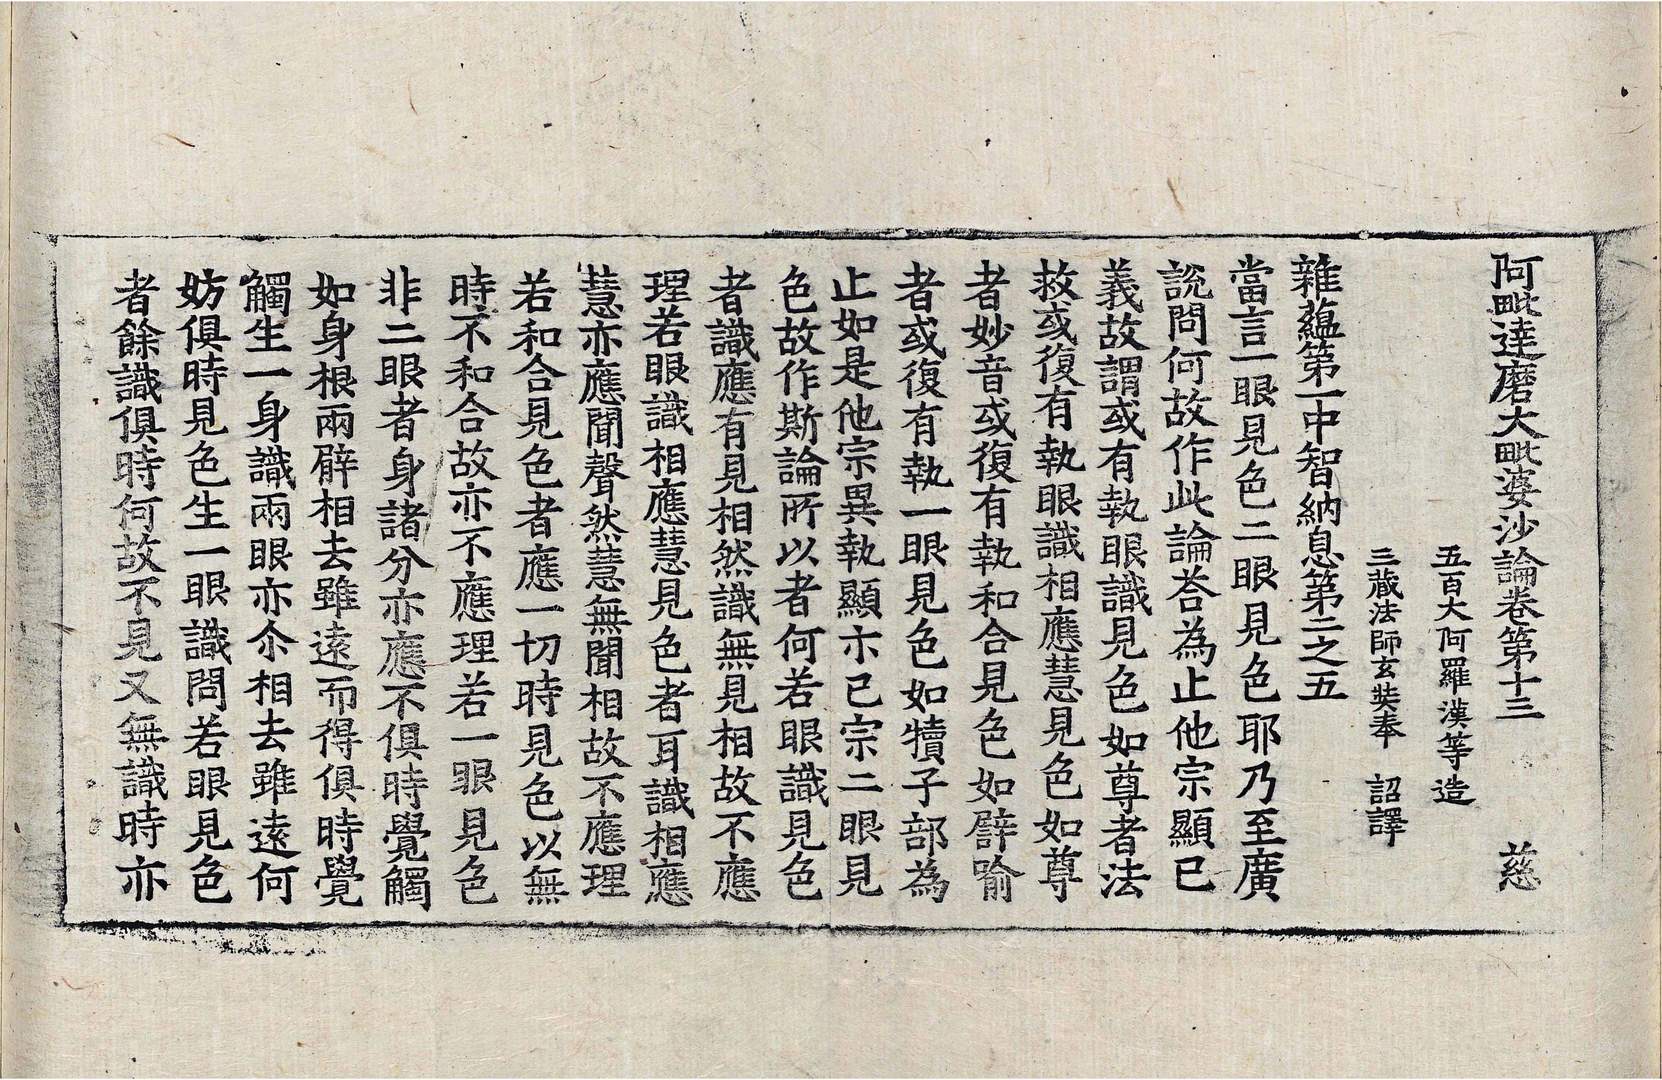 阿毗達磨大毗婆沙論卷第十三　慈
五百大阿羅漢等造
三藏法師玄奘奉　詔譯
雜蘊第一中智納息第二之五
當言一眼見色二眼見色耶乃至廣
說問何故作此論荅為止他宗顯已
義故謂或有執眼識見色如尊者法
救或復有執眼識相應慧見色如尊
者妙音或復有執和合見色如譬喻
者或復有執一眼見色如犢子部為
止如是他宗異執顯示已宗二眼見
色故作斯論所以者何若眼識見色
者識應有見相然識無見相故不應
理若眼識相應慧見色者耳識相應
慧亦應聞聲然慧無聞相故不應理
若和合見色者應一切時見色以無
時不和合故亦不應理若一眼見色
非二眼者身諸分亦應不俱時覺觸
如身根兩臂相去雖遠而得俱時覺
觸生一身識兩眼亦尒相去雖遠何
妨俱時見色生一眼識問若眼見色
者餘識俱時何故不見又無識時亦